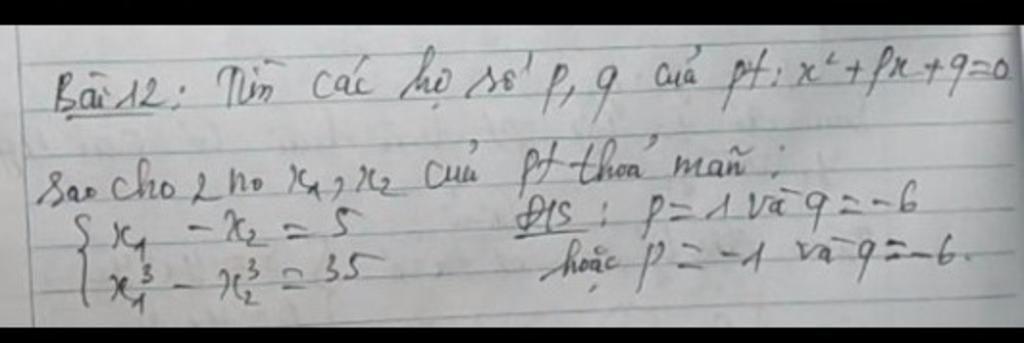 Bài 12: Tìm các hệ số p, q của pt: x² + px + q = 0
sao cho 2 no x₁, x₂ của pt thoả mãn:
{ x₁ - x₂ = 5 Đ/S: p = 1 và q = -6
x₁³ - x₂³ = 35 hoặc p = -1 và q = -6.